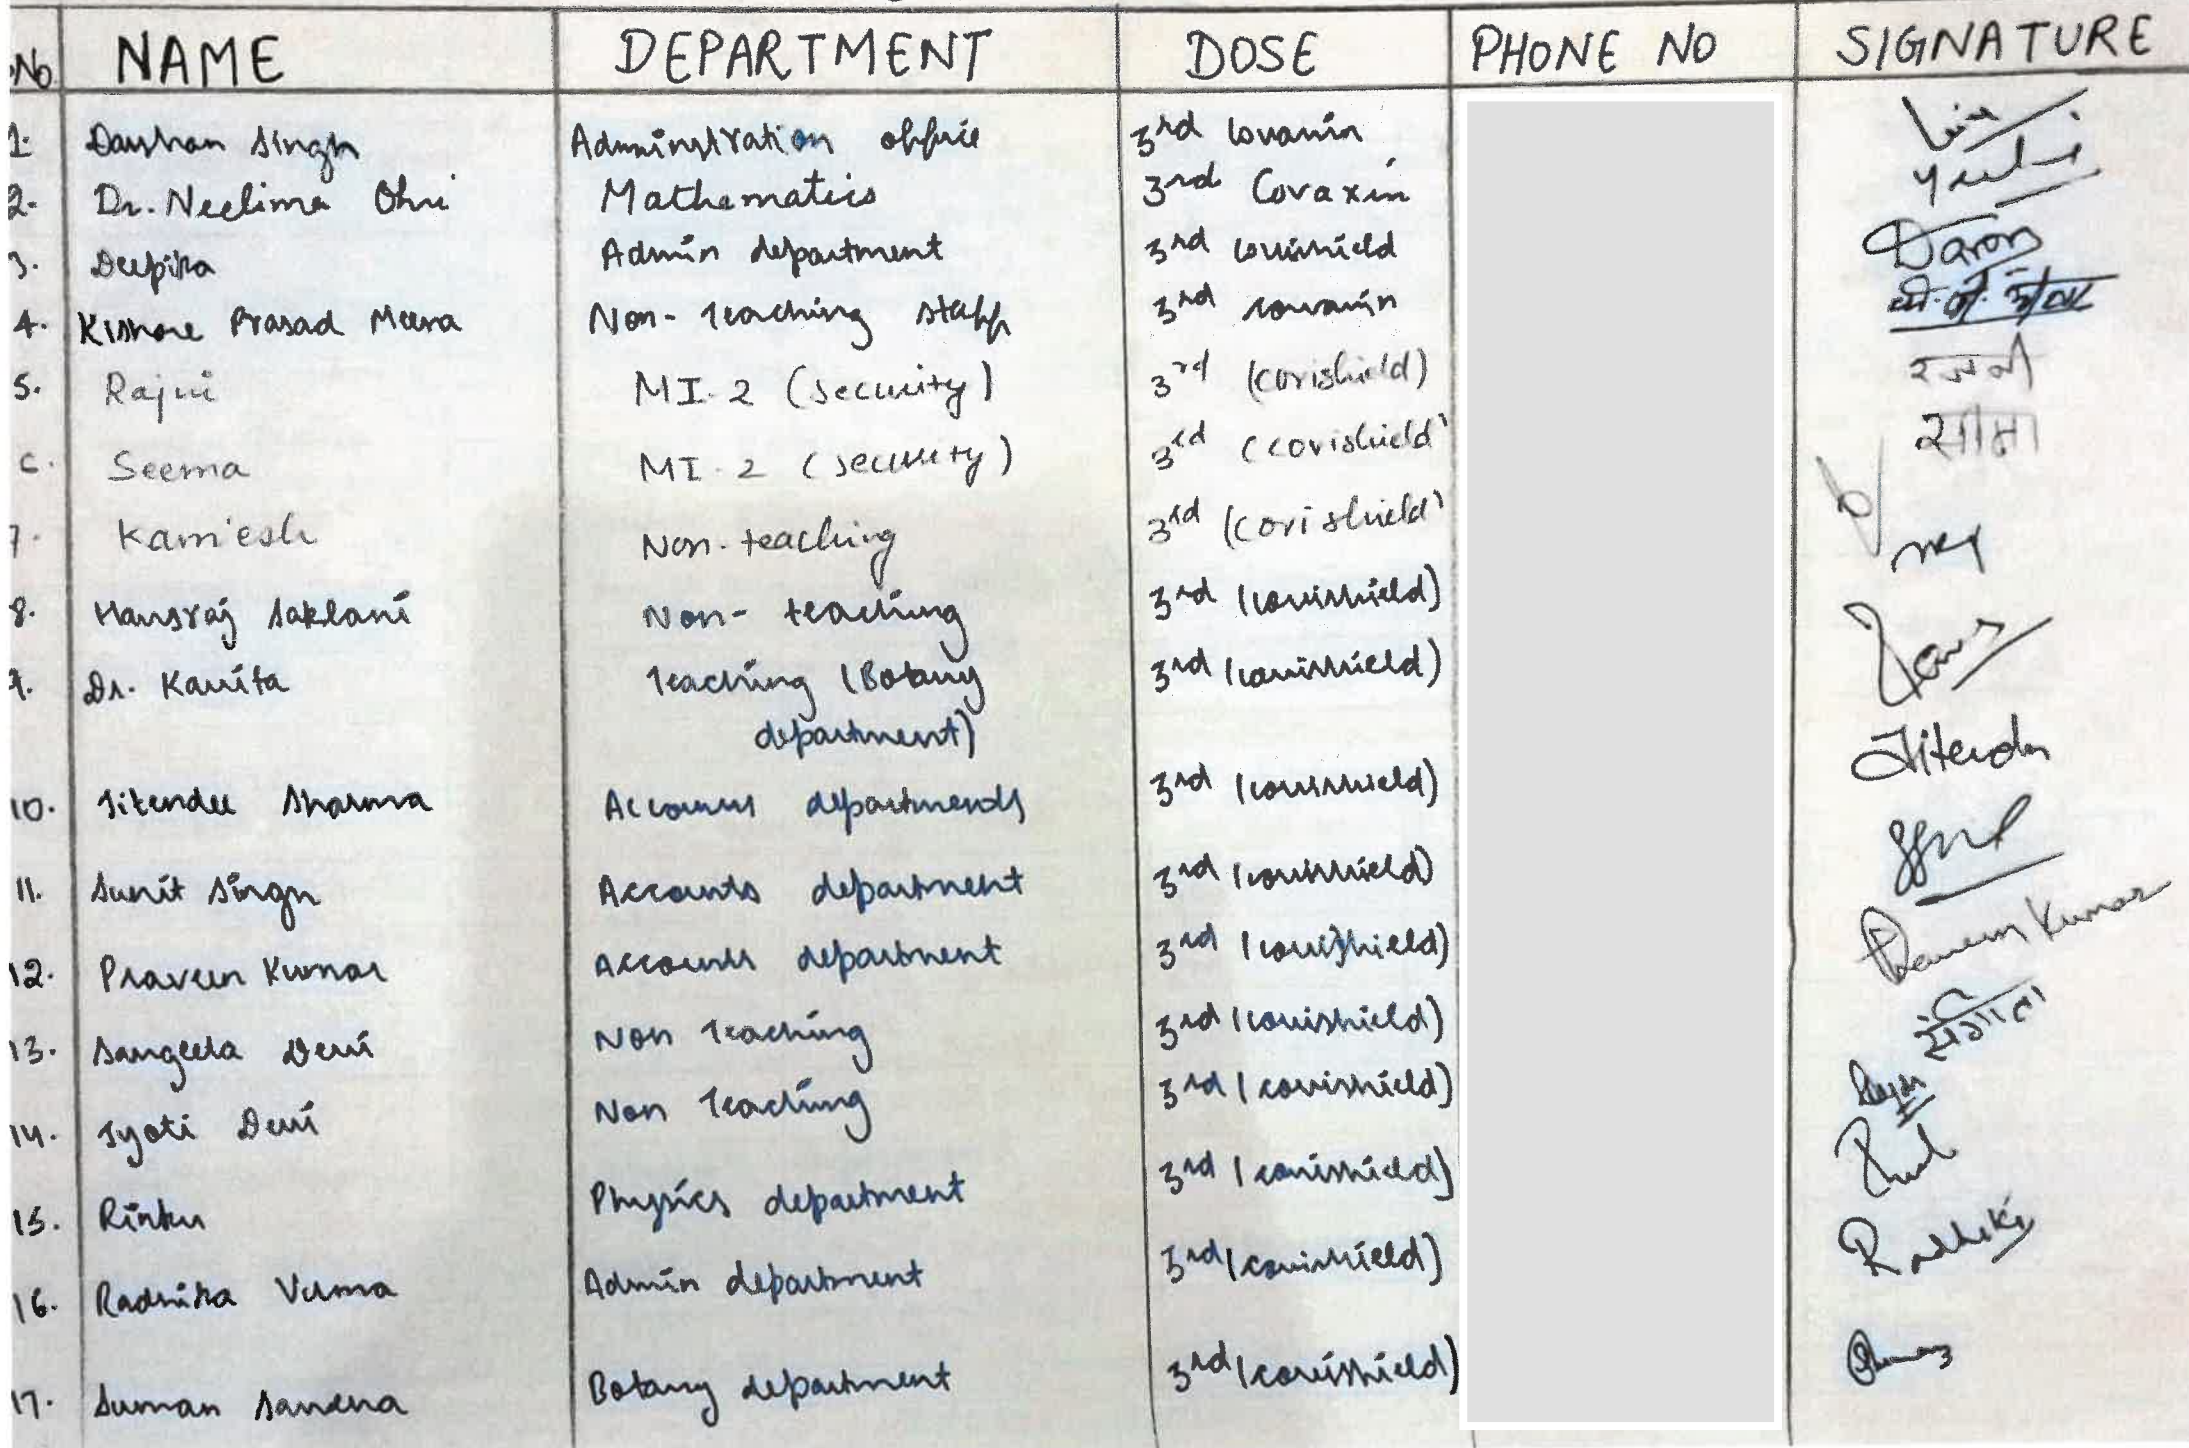 No. NAME DEPARTMENT DOSE PHONE NO SIGNATURE
1. Darshan Singh Administration office 3rd Covaxin
2. Dr. Neelima Ohri Mathematics 3rd Covaxin
3. Deepika Admin department 3rd covishield
4. Kishore Prasad Meena Non-teaching staff 3rd covaxin
5. Rajni MI-2 (security) 3rd (covishield) रजनी
6. Seema MI-2 (security) 3rd (covishield) सीमा
7. Kamlesh Non-teaching 3rd (covishield)
8. Hansraj Saklani Non-teaching 3rd (covishield)
9. Dr. Kavita Teaching (Botany 3rd (covishield)
department) Jitender
10. Jitender Sharma Accounts departments 3rd (covishield)
11. Sunit Singh Accounts department 3rd (covishield)
12. Praveen Kumar Accounts department 3rd (covishield) Praveen Kumar
13. Sangeeta Devi Non Teaching 3rd (covishield) संगीता
14. Jyoti Devi Non Teaching 3rd (covishield)
15. Rinku Physics department 3rd (covishield)
16. Radhika Verma Admin department 3rd (covishield) Radhika
17. Suman Saxena Botany department 3rd (covishield)